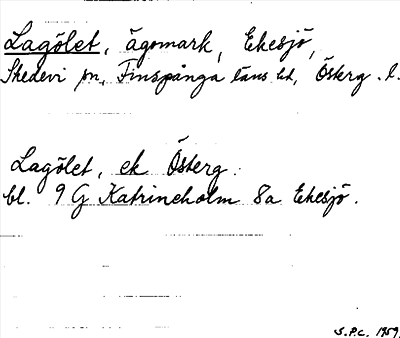 Lagölet, ägomark, Ekesjö,
Skedevi sn, Finspånga läns hd, Österg. l.
Lagölet, ek Österg.
bl. 9 G Katrineholm 8a Ekesjö.
S.P.C. 1959